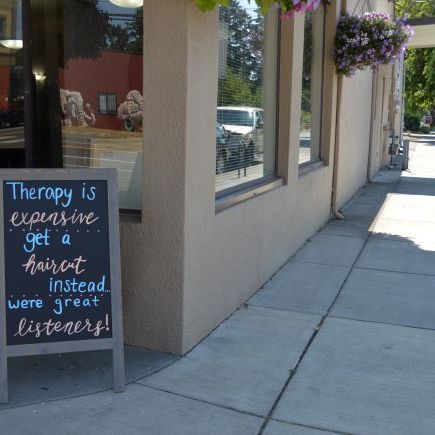 Therapy is
expensive
get a
haircut
instead...
were great
listeners!